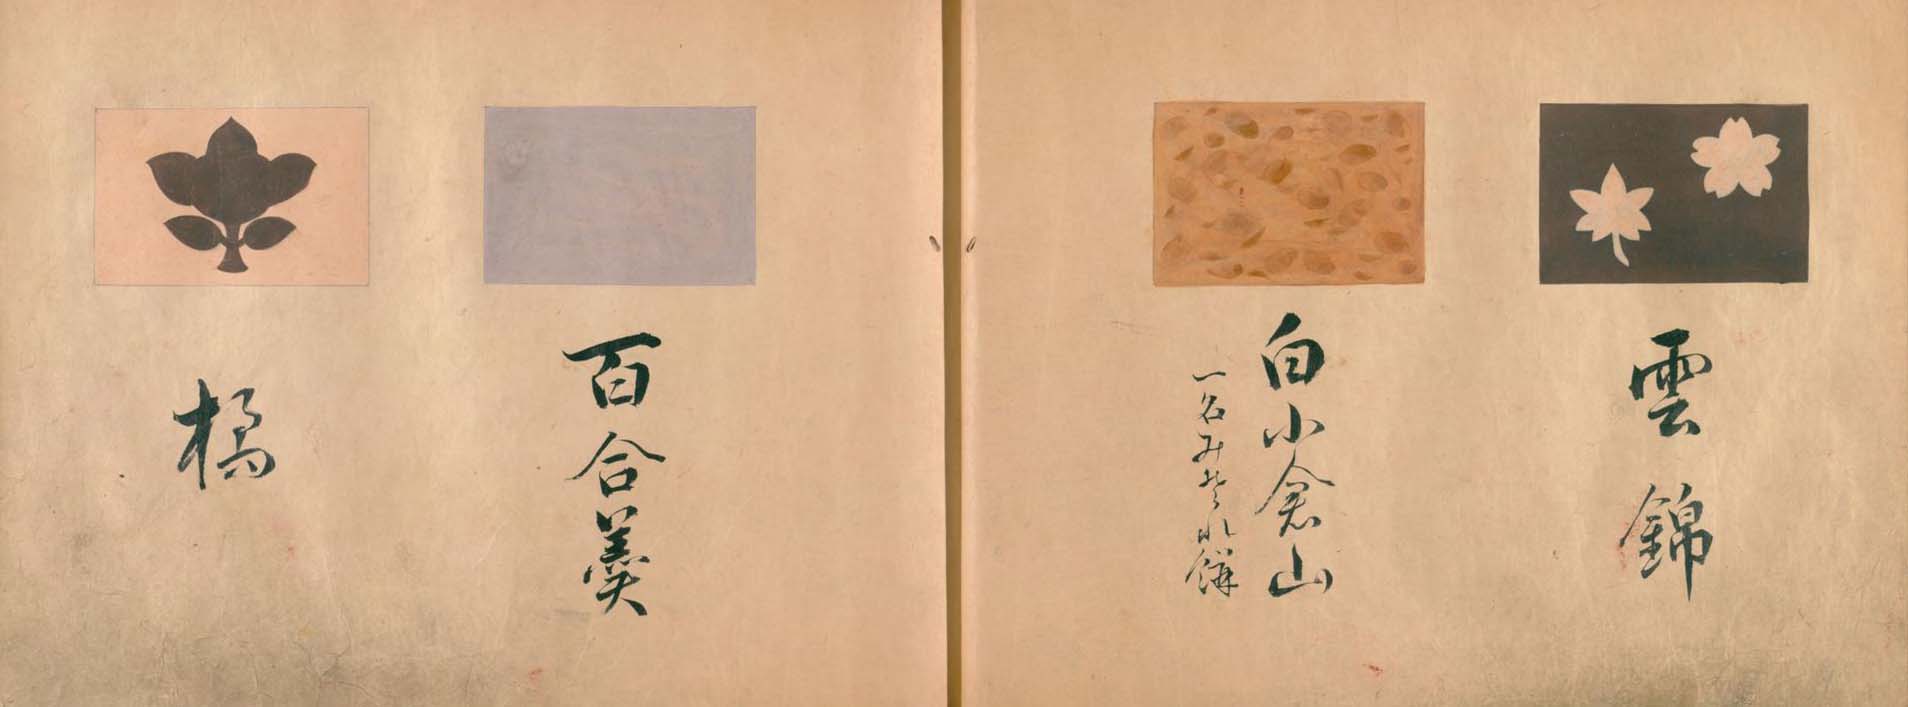 雲錦
白小倉山
一名みそれ餅
百合羹
橘